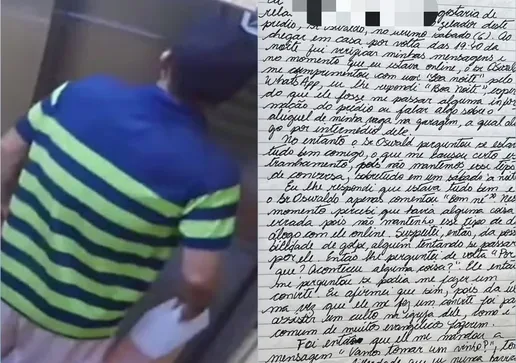 Eu
rela gostaria de
prédio, Sr Oswaldo, no mesmo zelador deste
chegar em casa por volta das 19:40 da sábado (6). Ao
noite fui verificar minhas mensagens e
no momento que eu estava online, o Sr Oswaldo
me cumprimentou com um "Boa noite" pelo
WhatsApp, eu lhe respondi "Boa Noite",
do que ele fosse me passar alguma infor
mação do prédio ou falar algo sobre o
aluguel de minha vaga na garagem, a qual alu
go por intermédio dele.
No entanto o Sr Oswald perguntou se estava
tudo bem comigo, o que me causou certo es
tranhamento, pois não mantemos esse tipo
de conversa, sobretudo em um sábado a noite
Eu lhe respondi que estava tudo bem e
o Sr Oswaldo apenas comentou "Bom né"? Nesse
momento percebi que havia alguma coisa
errada pois não mantenho esse tipo de diá
logo com ele online. Suspeitei, então, da possi
bilidade de golpe, alguém tentando se passar
por ele. Então lhe perguntei de volta "Por
que? Aconteceu alguma coisa?" Ele então
me perguntou se podia me fazer um
convite! Eu afirmei que sim, pois da últi
ma vez que ele me fez um convite foi para
assistir um culto na igreja dele, como é
comum de muitos evangélicos fazerem.
Foi então que ele me mandou a
mensagem "Vamos tomar um vinho?",